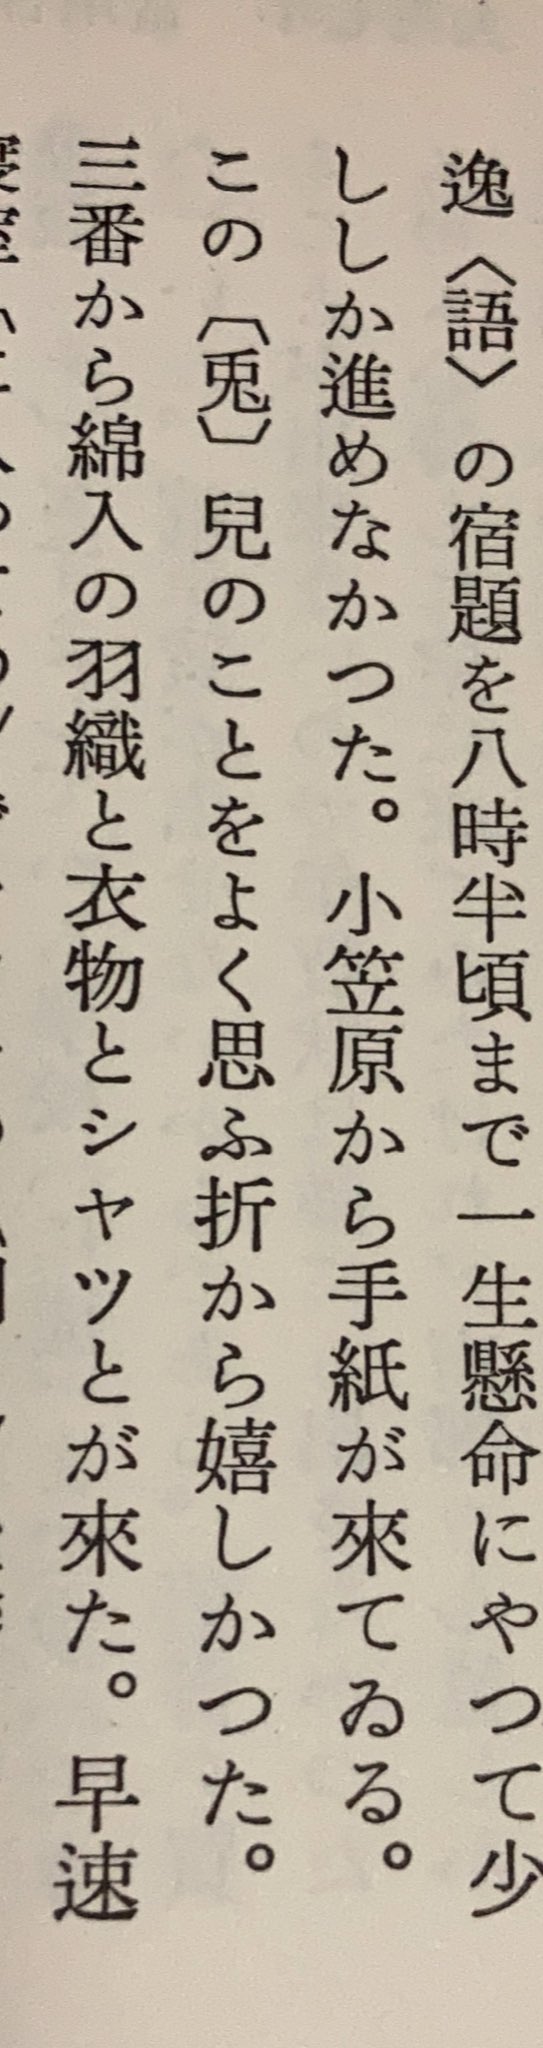 逸〈語〉の宿題を八時半頃まで一生懸命にやつて少
ししか進めなかつた。小笠原から手紙が來てゐる。
この〔兎〕兒のことをよく思ふ折から嬉しかつた。
三番から綿入の羽織と衣物とシャツとが來た。早速